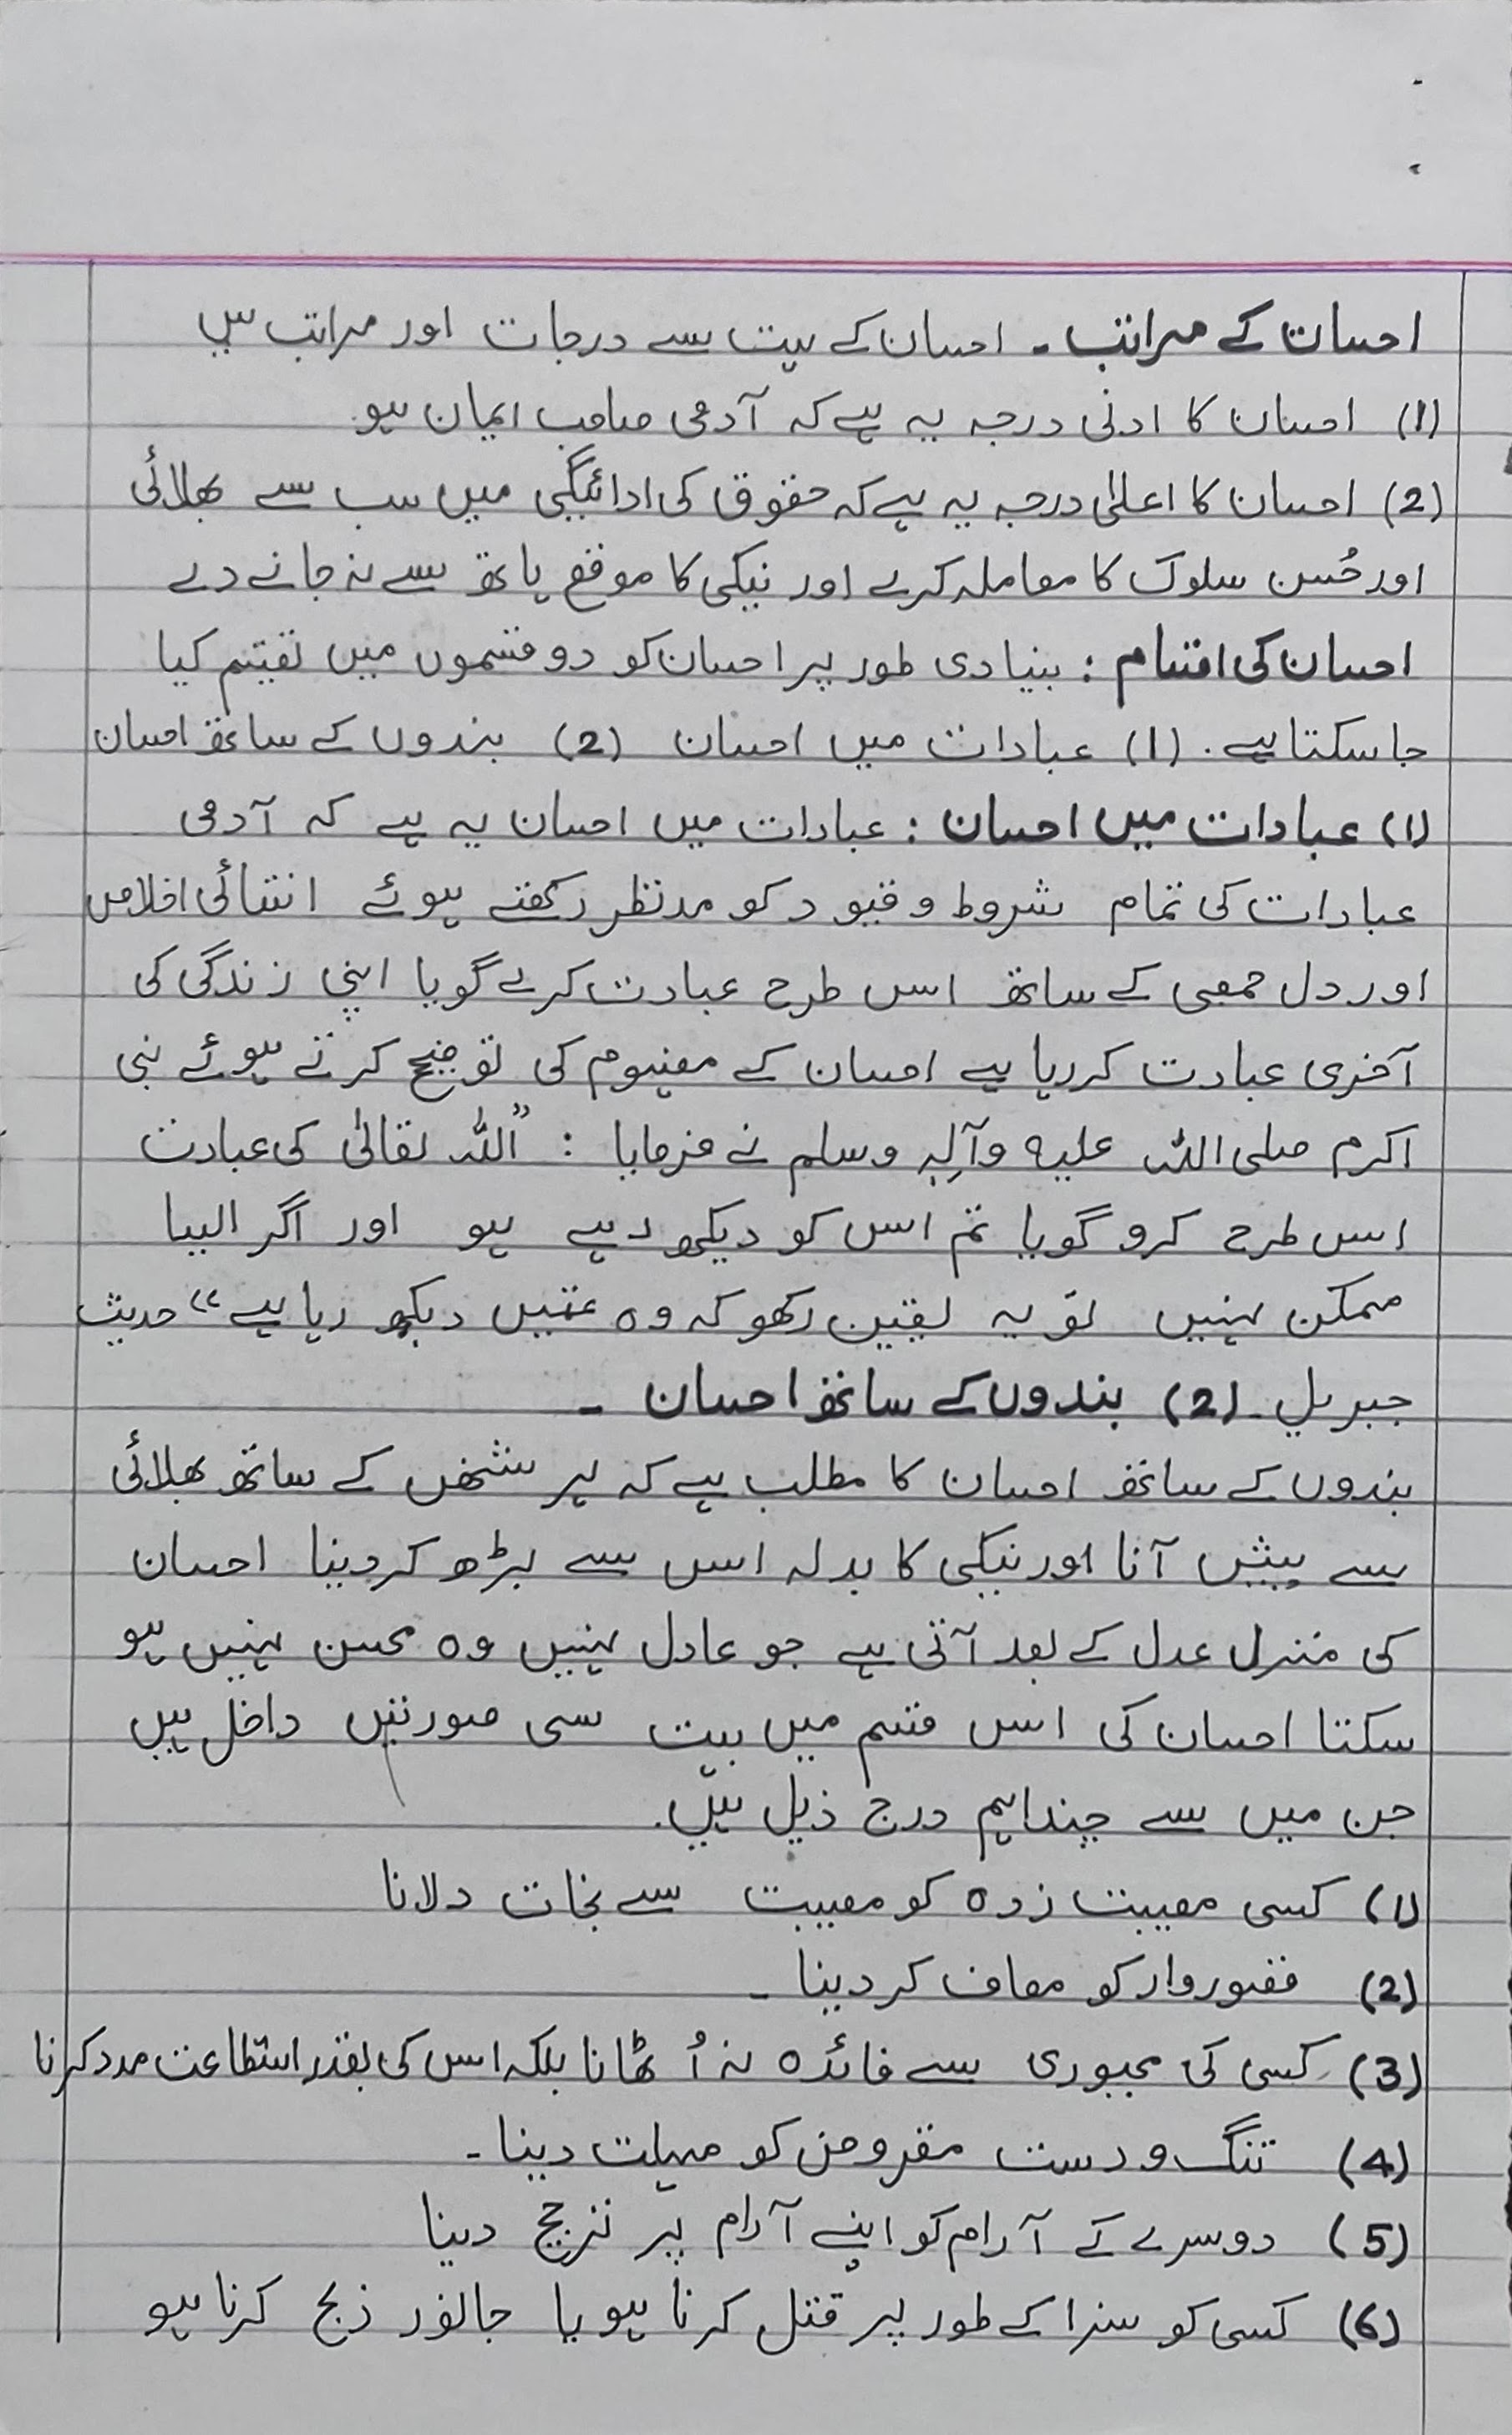 احسان کے مراتب ۔ احسان کے بہت سے درجات اور مراتب ہیں
(1) احسان کا ادنیٰ درجہ یہ ہے کہ آدمی صاحب ایمان ہو۔
(2) احسان کا اعلیٰ درجہ یہ ہے کہ حقوق کی ادائیگی میں سب سے بھلائی
اور حُسن سلوک کا معاملہ کرے اور نیکی کا موقع ہاتھ سے نہ جانے دے
احسان کی اقسام : بنیادی طور پر احسان کو دو قسموں میں تقسیم کیا
جا سکتا ہے۔ (1) عبادات میں احسان (2) بندوں کے ساتھ احسان
(1) عبادات میں احسان : عبادات میں احسان یہ ہے کہ آدمی
عبادات کی تمام شروط و قیود کو مدنظر رکھتے ہوئے انتہائی اخلاص
اور دل جمعی کے ساتھ اس طرح عبادت کرے گویا اپنی زندگی کی
آخری عبادت کر رہا ہے احسان کے مفہوم کی توضیح کرتے ہوئے نبی
اکرم صلی اللہ علیہ وآلِہٖ وسلم نے فرمایا : ”اللہ تعالیٰ کی عبادت
اس طرح کرو گویا تم اس کو دیکھ رہے ہو اور اگر ایسا
ممکن نہیں تو یہ یقین رکھو کہ وہ تمہیں دیکھ رہا ہے“ حدیث
جبریل ۔ (2) بندوں کے ساتھ احسان ۔
بندوں کے ساتھ احسان کا مطلب ہے کہ ہر شخص کے ساتھ بھلائی
سے پیش آنا اور نیکی کا بدلہ اس سے بڑھ کر دینا احسان
کی منزل عدل کے بعد آتی ہے جو عادل نہیں وہ محسن نہیں ہو
سکتا احسان کی اس قسم میں بہت سی صورتیں داخل ہیں
جن میں سے چند اہم درج ذیل ہیں۔
(1) کسی مصیبت زدہ کو مصیبت سے نجات دلانا
(2) قصوروار کو معاف کر دینا ۔
(3) کسی کی مجبوری سے فائدہ نہ اُٹھانا بلکہ اس کی بقدر استطاعت مدد کرنا
(4) تنگ و دست مقروض کو مہلت دینا ۔
(5) دوسرے کے آرام کو اپنے آرام پر ترجیح دینا
(6) کسی کو سزا کے طور پر قتل کرنا ہو یا جانور ذبح کرنا ہو